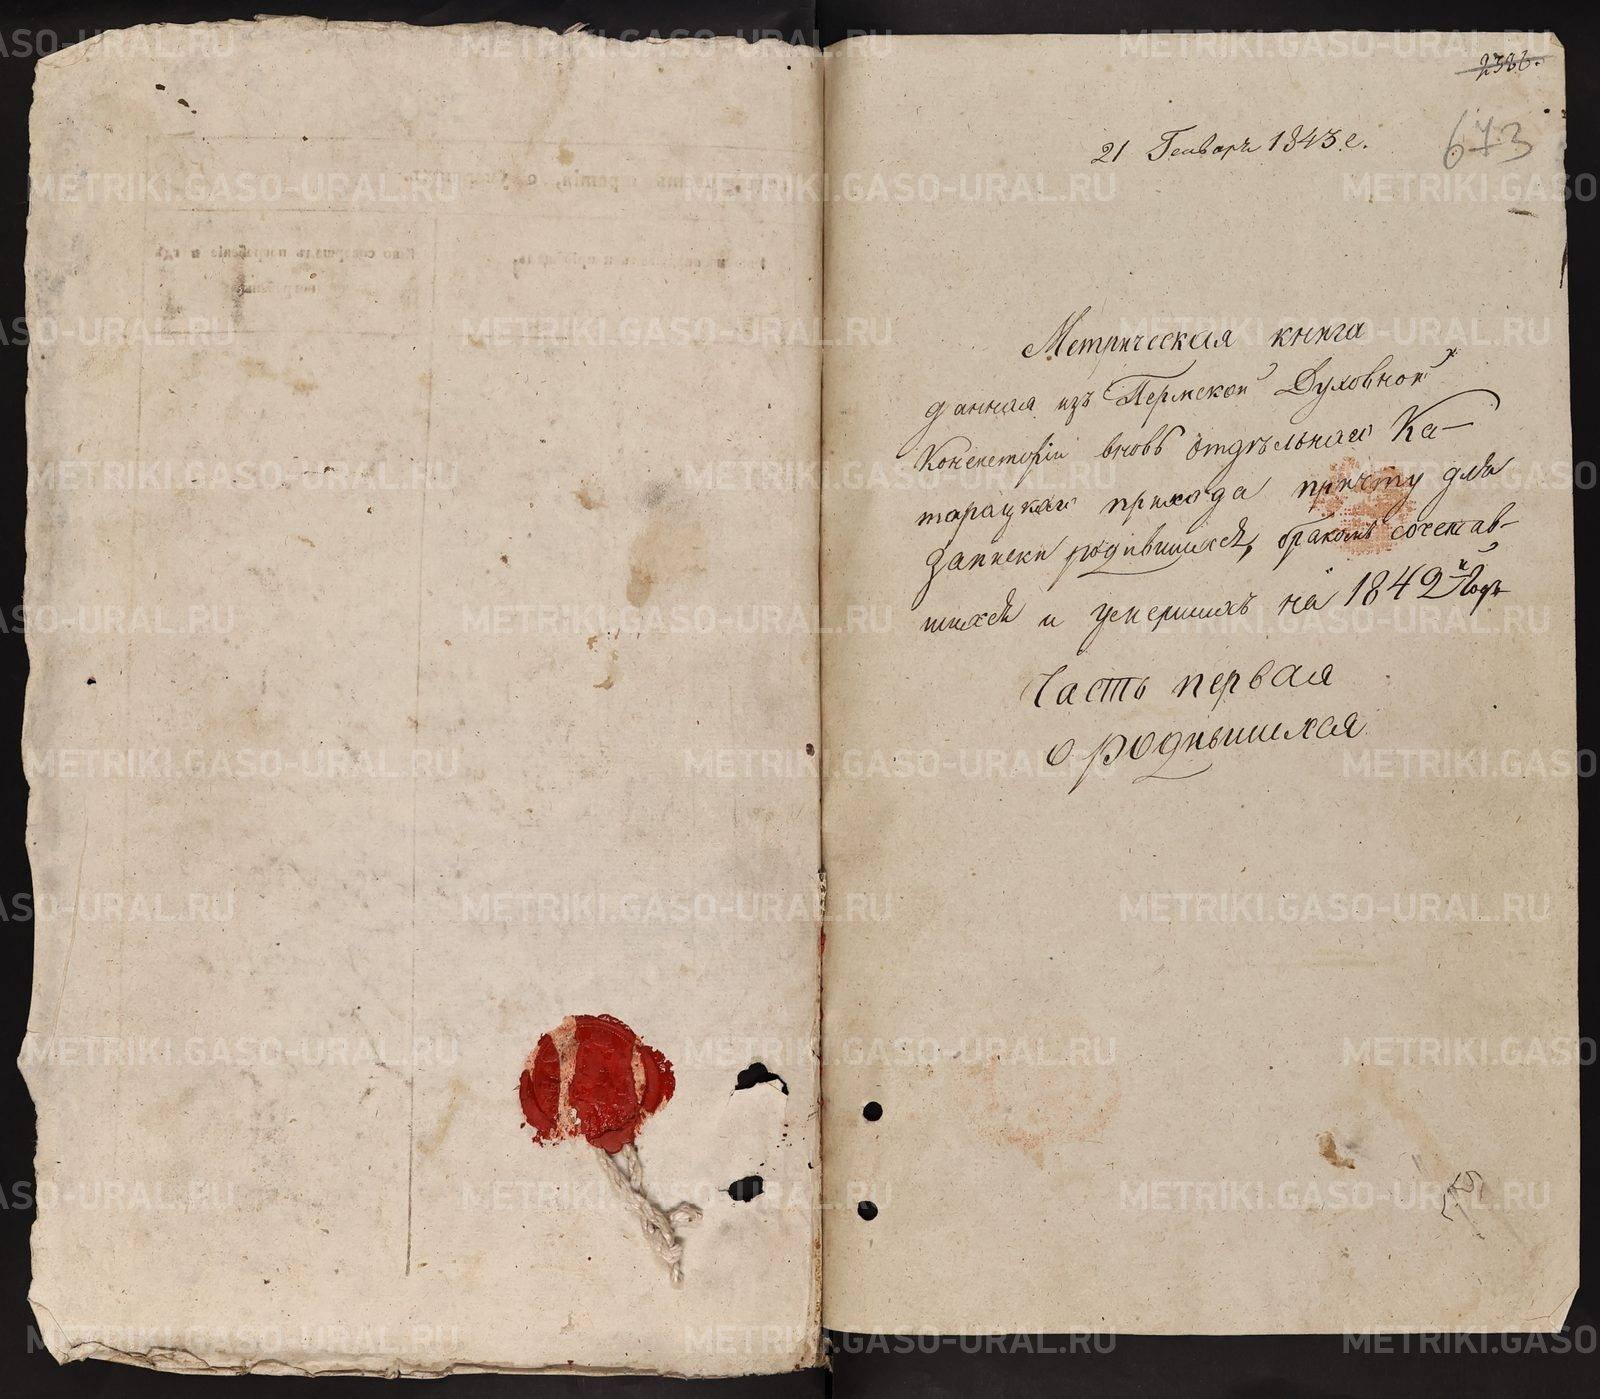 2386.
673
21 Генваря 1843 г.
Метрическая книга
данная изъ Пермской Духовной
Консисторіи вновь отдѣльнаго Ка-
тарацкаго прихода причту для
записки родившихся, бракомъ сочетав-
шихся и умершихъ на 1842й Годъ
Часть первая
о родившихся
METRIKI.GASO-URAL.RU